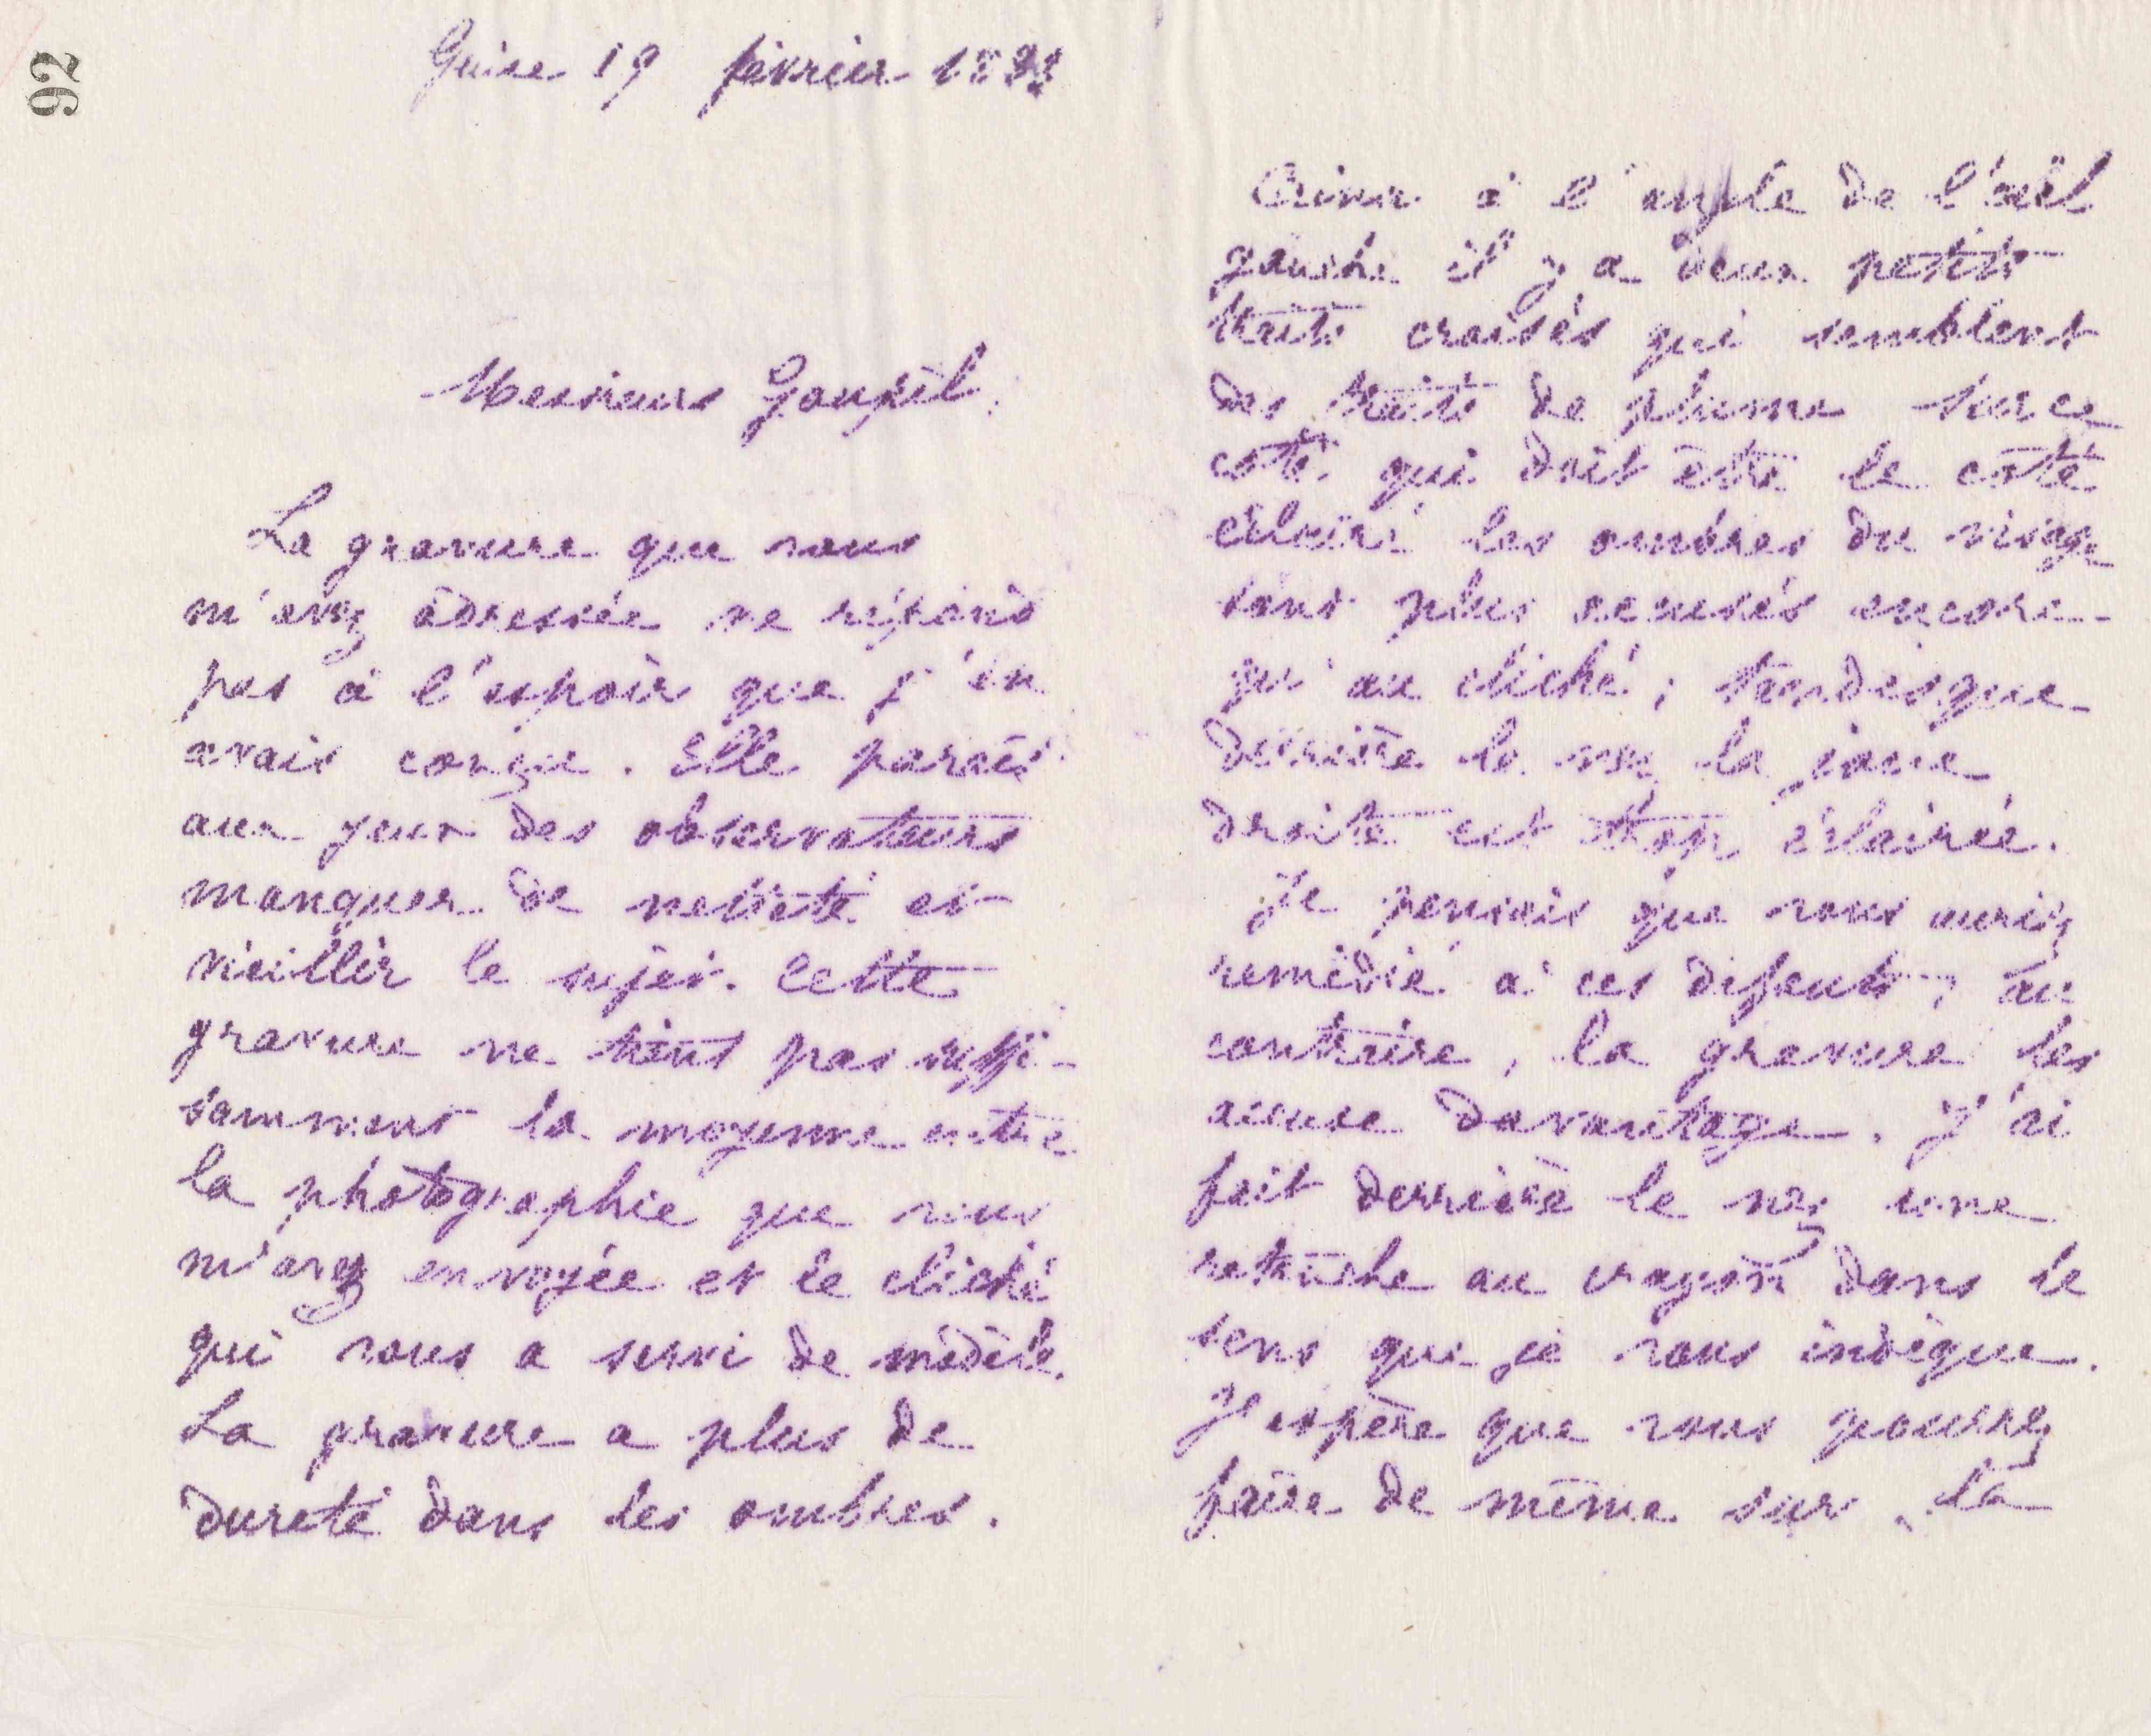 92
Guise 19 février
Messieurs Goupil.
La gravure que vous
m'avez adressée ne répond
pas à l'espoir que j'en
avais conçu. Elle paraît
aux yeux des observateurs
manquer de netteté et
vieillir le sujet. Cette
gravure ne tient pas suffi-
samment la moyenne entre
la photographie que vous
m'avez envoyée et le cliché
qui vous a servi de modèle.
La gravure a plus de
dureté dans les ombres.
à l'angle de l'œil
gauche il y a deux petits
traits croisés qui semblent
des traits de plume sur ce
côté qui doit être le côté
éclairé les ombres du visage
sont plus accusés encore
qu'au cliché; tandis que
derrière le nez la joue
droite est trop éclairée.
Je pensais que vous auriez
remédié à ces défauts; au
contraire, la gravure les
accuse davantage. J'ai
fait derrière le nez une
retouche au crayon dans le
sens que je vous indique.
J'espère que vous pourrez
faire de même sur la